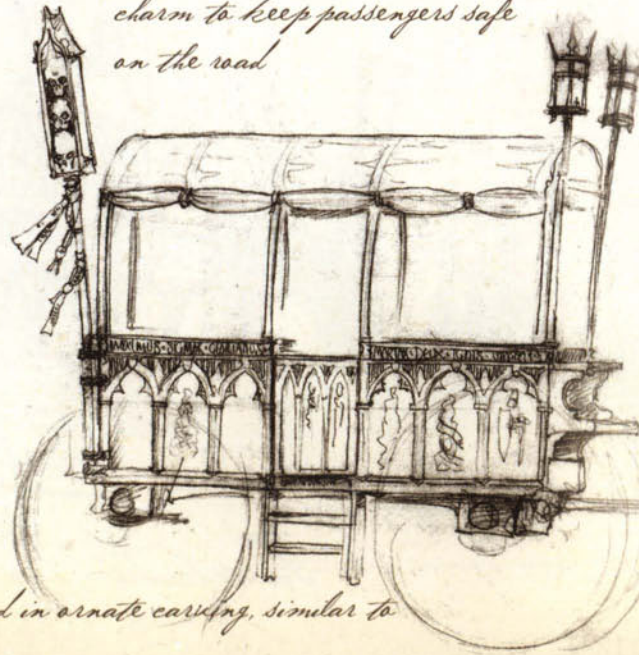 charm to keep passengers safe
on the road
d in ornate carving, similar to